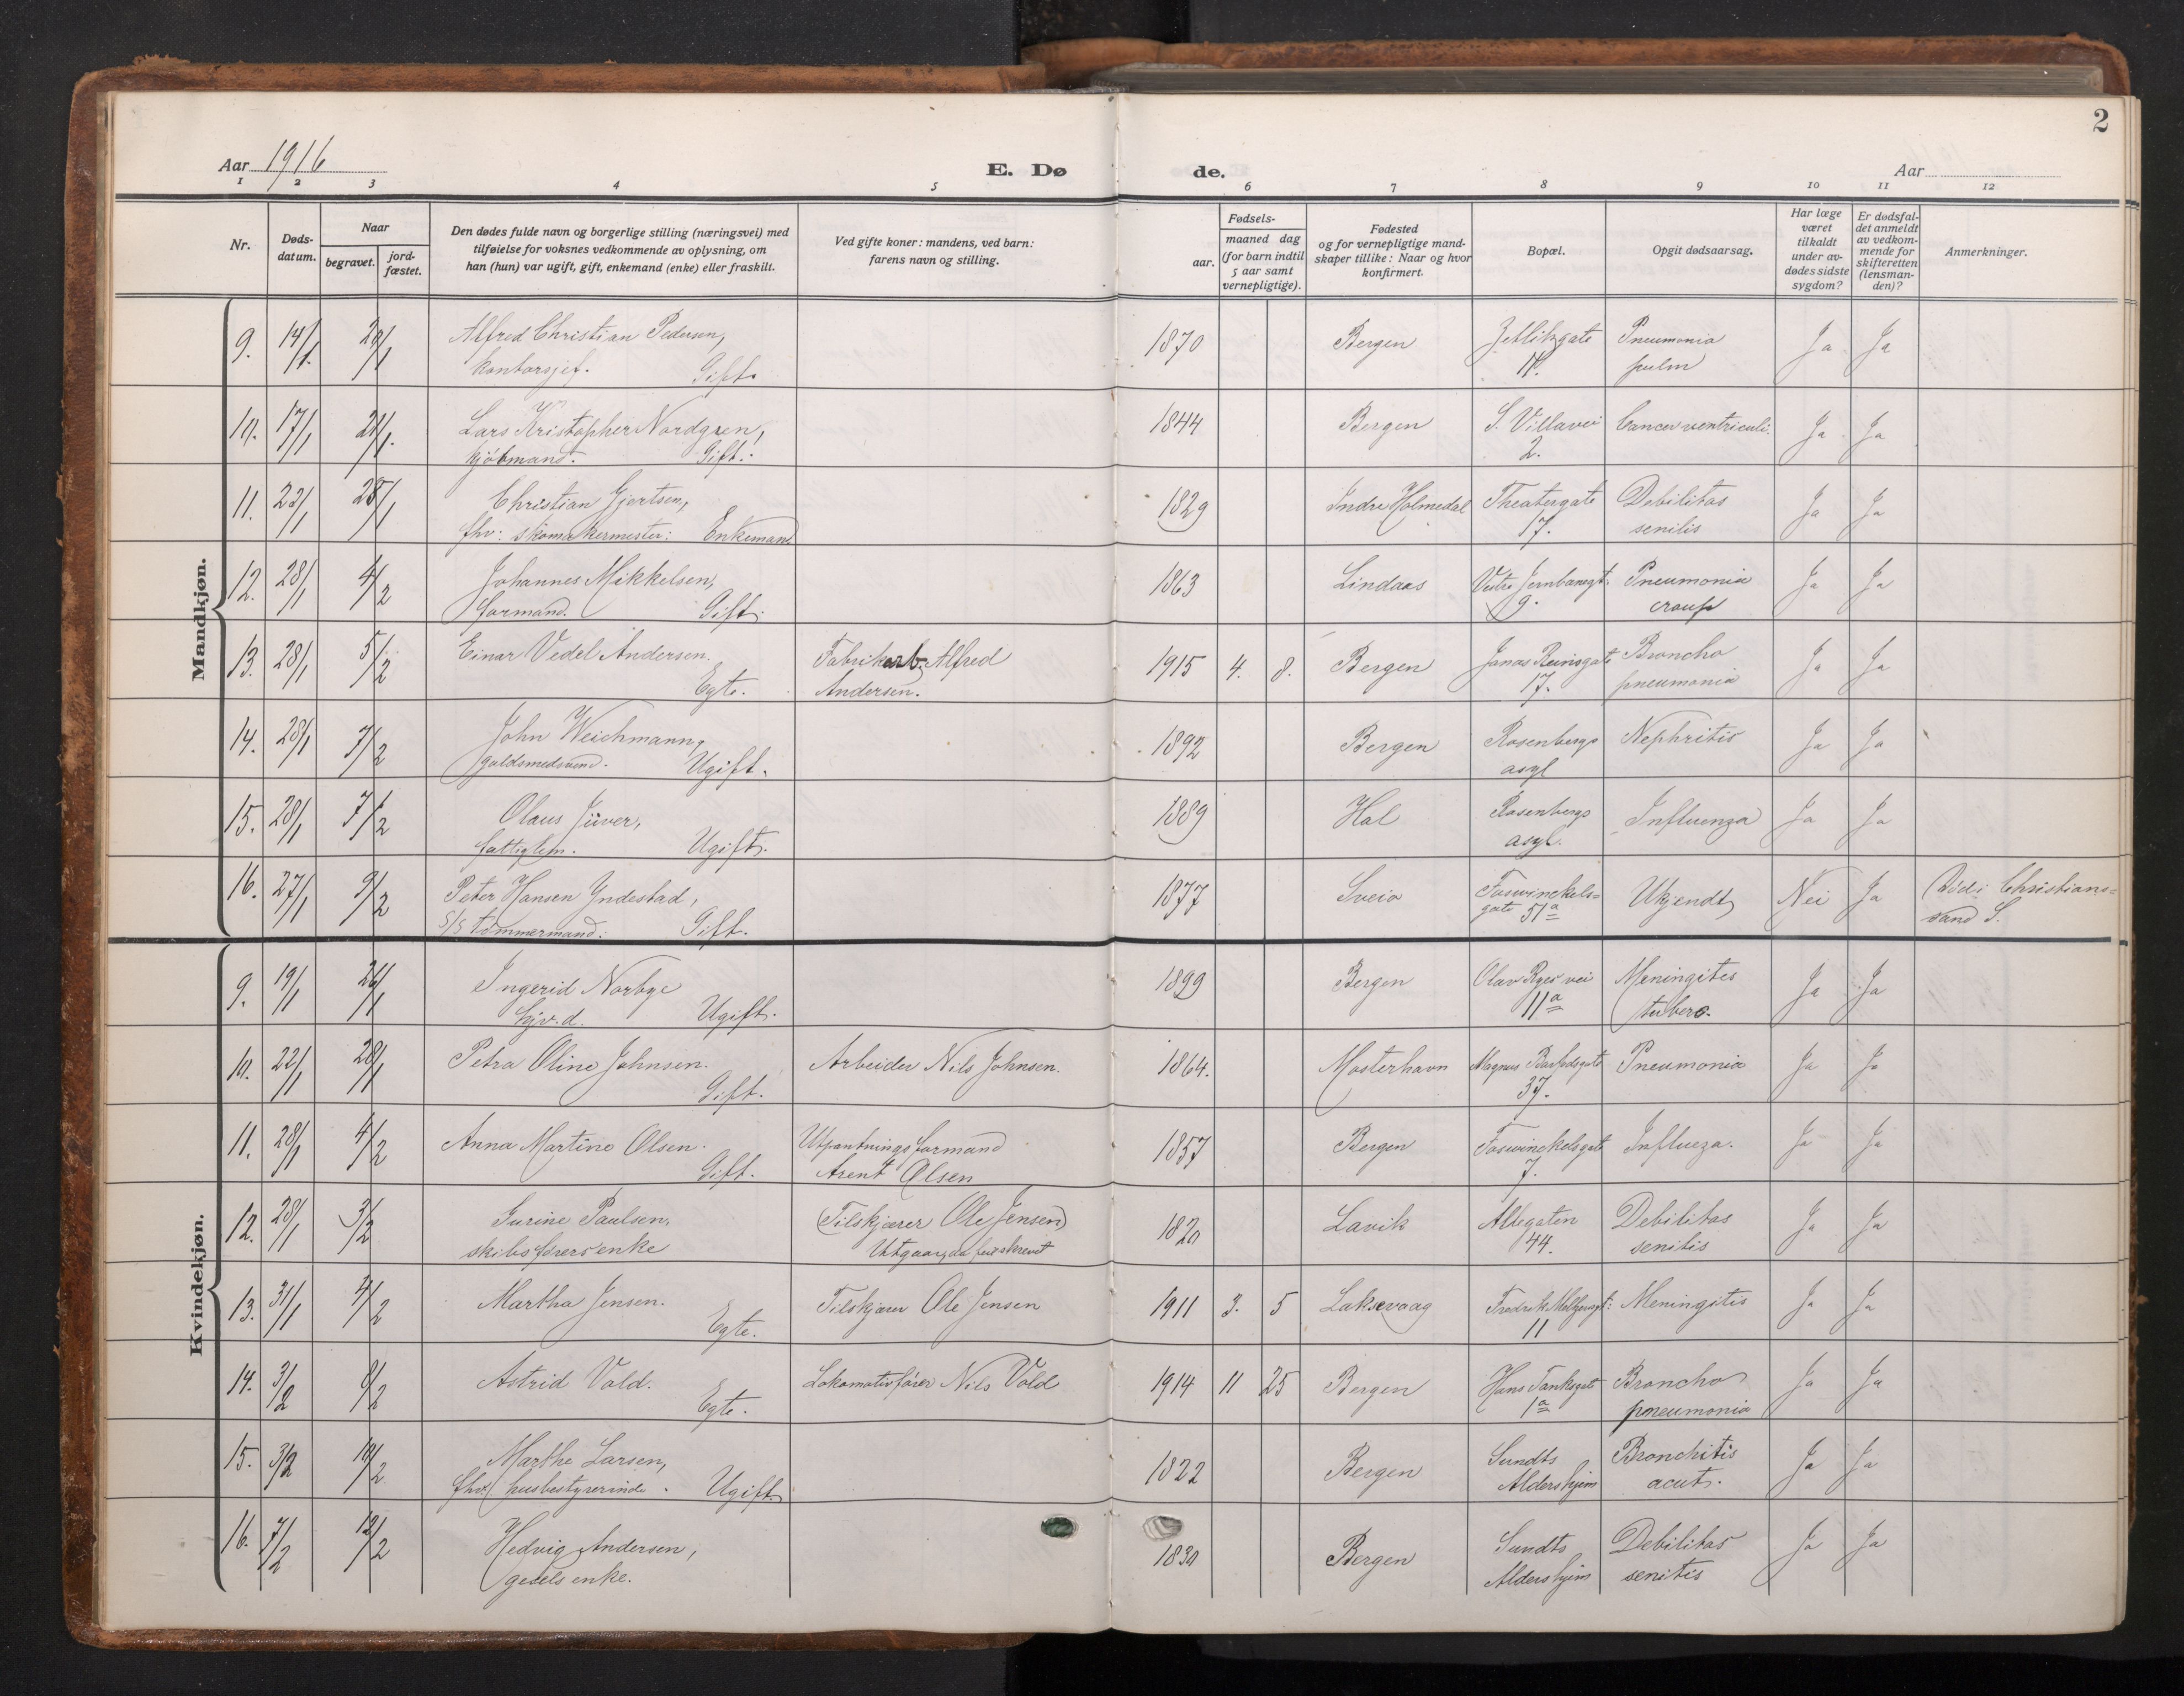 2
Aar 1916
E. Dø
de.
Aar
1 2 3 4 5 6 7 8 9 10 11 12
Nr.
Døds-
datum.
Naar
begravet.
jord-
fæstet.
Den dødes fulde navn og borgerlige stilling (næringsvei) med
tilføielse for voksnes vedkommende av oplysning, om
han (hun) var ugift, gift, enkemand (enke) eller fraskilt.
Ved gifte koner: mandens, ved barn:
farens navn og stilling.
Fødsels-
aar.
maaned dag
(for barn indtil
5 aar samt
vernepligtige).
Fødested
og for vernepligtige mand-
skaper tillike: Naar og hvor
konfirmert.
Bopæl.
Opgit dødsaarsag.
Har læge
været
tilkaldt
under av-
dødes sidste
sygdom?
Er dødsfal-
det anmeldt
av vedkom-
mende for
skifteretten
(lensman-
den)?
Anmerkninger.
Mandkjøn.
9. 14/1. 20/1 Alfred Christian Pedersen, 1870 Bergen Zetlitzgate Pneumonia Ja Ja
kontorsjef. Gift. 11. pulm
10. 17/1 21/1. Lars Kristopher Nordgren, 1844 Bergen S. Villavei Cancer ventriculi. Ja Ja
kjøbmand. Gift. 2.
11. 22/1 28/1 Christian Gjertsen, 1829 Indre Holmedal Theatergate Debilitas Ja Ja
fhv: skomakermester: Enkemand 17. senilis
12. 28/1 4/2 Johannes Mikkelsen, 1863 Lindaas Vestre Jernbanegt. Pneumonia Ja Ja
formand. Gift. 9. croup
13. 28/1 5/2 Einar Vedel Andersen. Fabrikarb. Alfred 1915 4. 8. Bergen Jonas Reinsgate Broncho Ja Ja
Egte. Andersen. 17. pneumonia
14. 28/1 7/2 John Weichmann, 1892 Bergen Rosenbergs Nephritis Ja Ja
guldsmedsvend. Ugift. asyl
15. 28/1 7/2 Olaus Jüver, 1889 Hal Rosenbergs Influenza Ja Ja
fattiglem. Ugift. asyl.
16. 27/1 9/2 Peter Hansen Yndestad, 1877 Sveio Foswinckels= Ukjendt Nei Ja Død i Christians=
S/S tømmermand: Gift. gate 51a sand S.
Kvindekjøn.
9. 19/1 26/1 Ingerid Norbye 1899 Bergen Olav Ryes vei Meningites Ja Ja
hjv. d. Ugift. 11a tuberc.
10. 22/1 28/1 Petra Oline Johnsen. Arbeider Nils Johnsen. 1864. Mosterhavn Magnus Barfodsgate Pneumonia Ja Ja
Gift. 37.
11. 28/1 4/2 Anna Martine Olsen. Utpantningsformand 1857 Bergen Foswinckelsgate Influeza. Ja Ja
Gift. Arent Olsen 7.
12. 28/1 3/2 Gurine Paulsen, (Tilskjærer Ole Jensen) 1820 Lavik Allegaten Debilitas Ja Ja
skibsførersenke Utgaar, da feilskrevet 44. senilis
13. 31/1 4/2 Martha Jensen. Tilskjærer Ole Jensen 1911 3. 5 Laksevaag Fredrik Meltzersgt: Meningitis Ja Ja
Egte. 11
14. 3/2 8/2 Astrid Vold. Lokomotivfører Nils Vold 1914 11 25 Bergen Hans Tanksgate Broncho Ja Ja
Egte. 1a pneumonia
15. 3/2 10/2 Marthe Larsen, 1822 Bergen Sundts Bronchitis Ja Ja
fhv. husbestyrerinde. Ugift. Aldershjem acut.
16. 7/2 12/2 Hedvig Andersen, 1830 Bergen Sundts Debilitas Ja Ja
gesels enke. Aldershjem senitis